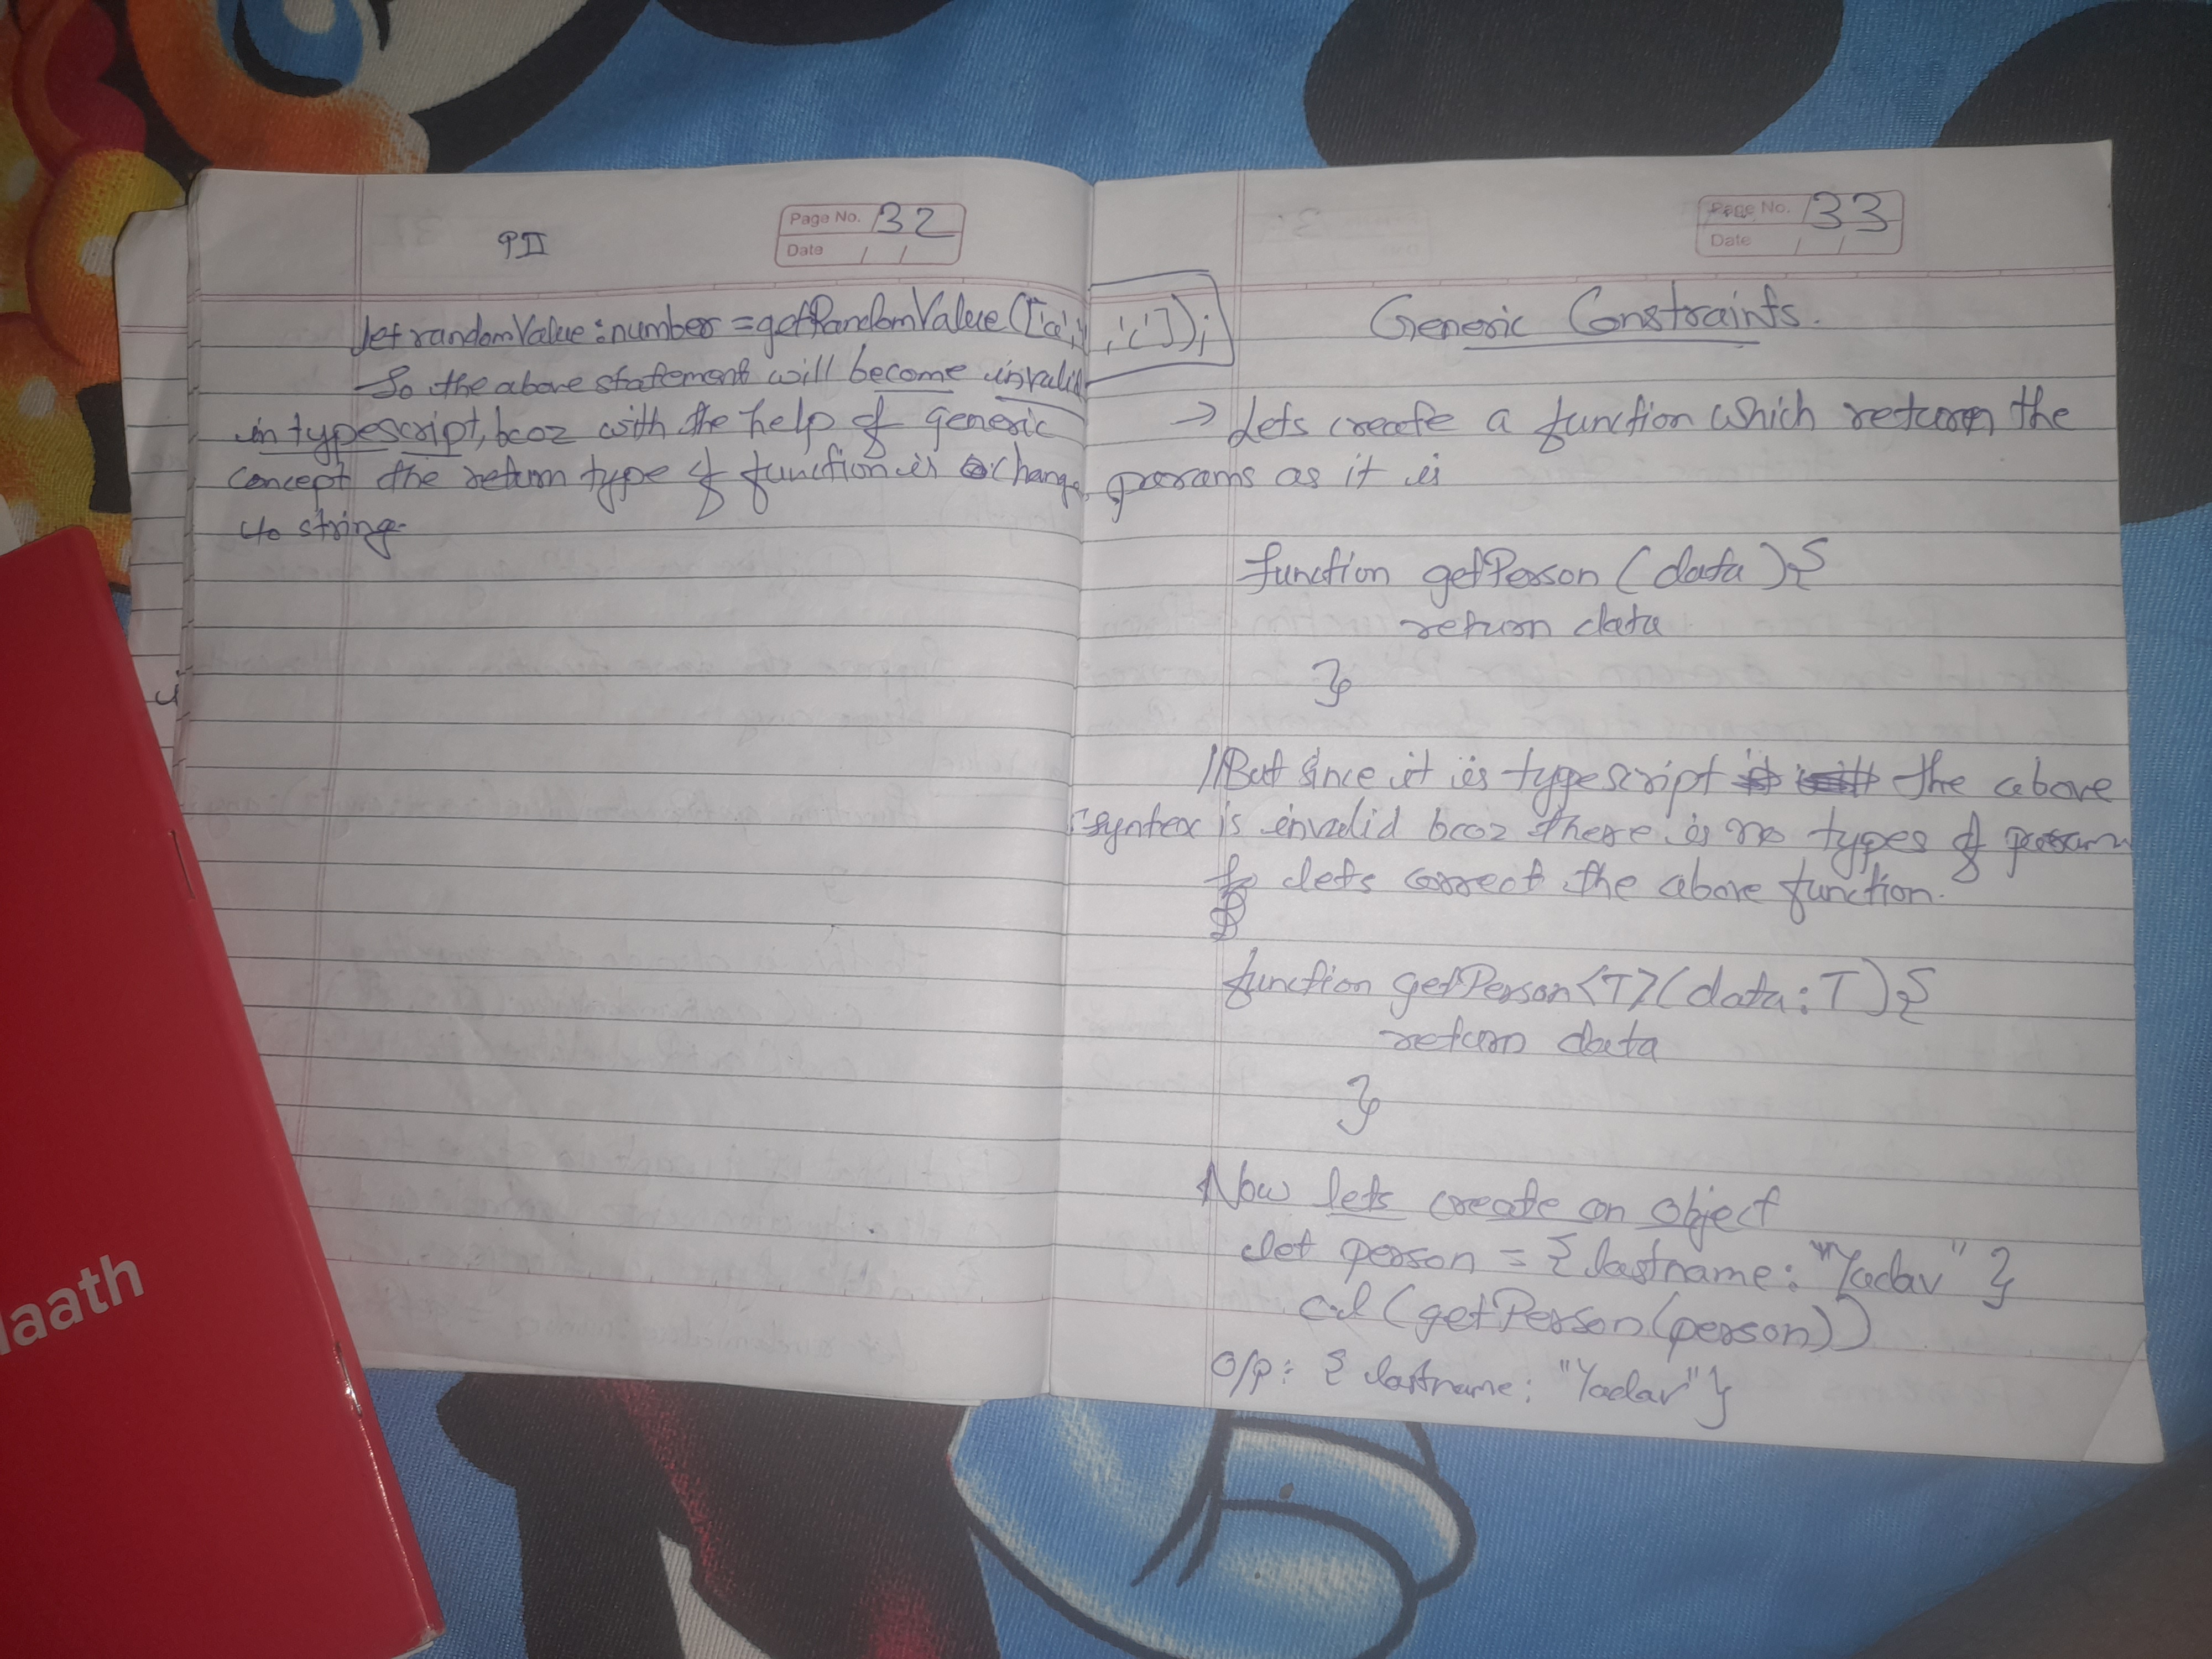 PII
Page No. 32
Date / /
let randomValue : number = getRandomValue(['a', ,'c']);
So the above statement will become invalid
in typescript, bcoz with the help of generic
concept the return type of function is change
to string.
Page No. 33
Date / /
Generic Constraints.
→ Lets create a function which return the
params as it is
function getPerson (data) {
return data
}
//But since it is typescript the above
syntex is invalid bcoz there is no types of param
lets correct the above function.
function getPerson<T>(data : T) {
return data
}
Now lets create an object
let person = { lastname : "Yadav" }
c.l (getPerson(person))
O/P : { lastname : "Yadav" }
laath